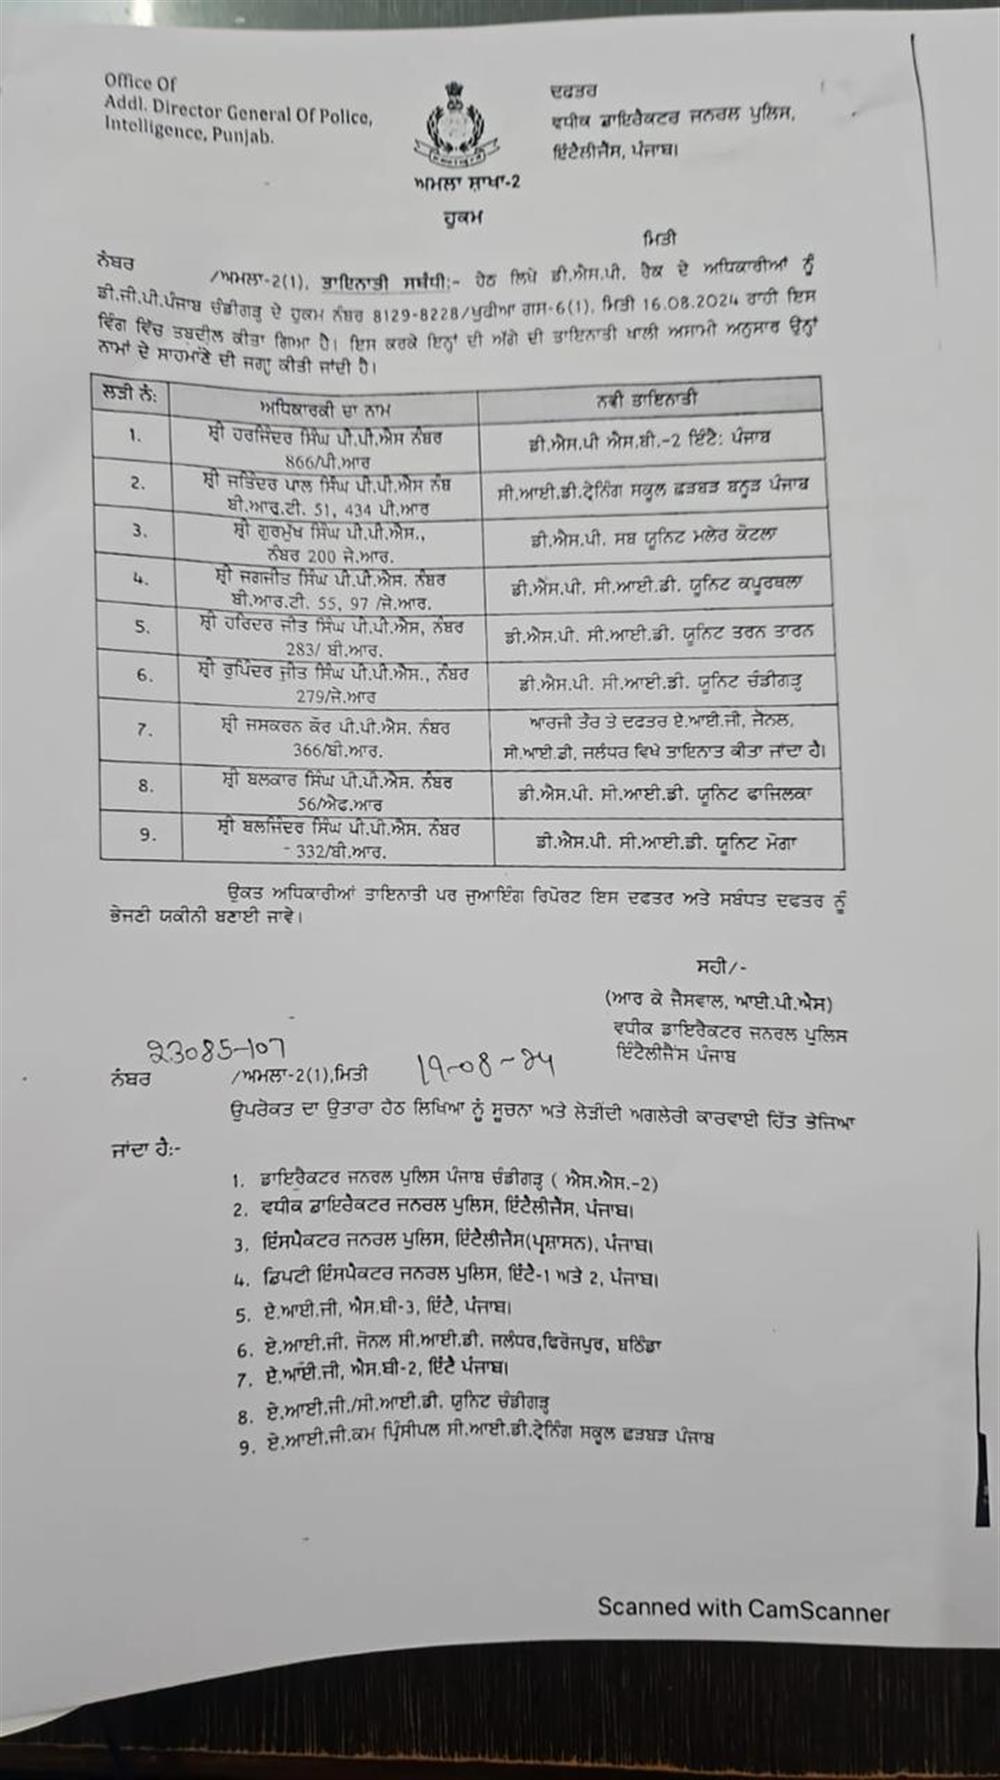 Office Of
Addl. Director General Of Police,
Intelligence, Punjab.
ਦਫਤਰ
ਵਧੀਕ ਡਾਇਰੈਕਟਰ ਜਨਰਲ ਪੁਲਿਸ,
ਇੰਟੈਲੀਜੈਂਸ, ਪੰਜਾਬ।
ਅਮਲਾ ਸ਼ਾਖਾ-2
ਹੁਕਮ
ਮਿਤੀ
ਨੰਬਰ /ਅਮਲਾ-2(1), ਤਾਇਨਾਤੀ ਸਬੰਧੀ:- ਹੇਠ ਲਿਖੇ ਡੀ.ਐਸ.ਪੀ. ਰੈਂਕ ਦੇ ਅਧਿਕਾਰੀਆਂ ਨੂੰ
ਡੀ.ਜੀ.ਪੀ.ਪੰਜਾਬ ਚੰਡੀਗੜ੍ਹ ਦੇ ਹੁਕਮ ਨੰਬਰ 8129-8228/ਖੁਫੀਆ ਗਸ-6(1), ਮਿਤੀ 16.08.2024 ਰਾਹੀ ਇਸ
ਵਿੰਗ ਵਿੱਚ ਤਬਦੀਲ ਕੀਤਾ ਗਿਆ ਹੈ। ਇਸ ਕਰਕੇ ਇਨ੍ਹਾਂ ਦੀ ਅੱਗੇ ਦੀ ਤਾਇਨਾਤੀ ਖਾਲੀ ਅਸਾਮੀ ਅਨੁਸਾਰ ਉਨ੍ਹਾਂ
ਨਾਮਾਂ ਦੇ ਸਾਹਮਣੇ ਦੀ ਜਗ੍ਹਾ ਕੀਤੀ ਜਾਂਦੀ ਹੈ।
ਲੜੀ ਨੰ: ਅਧਿਕਾਰਕੀ ਦਾ ਨਾਮ ਨਵੀ ਤਾਇਨਾਤੀ
1. ਸ਼੍ਰੀ ਹਰਜਿੰਦਰ ਸਿੰਘ ਪੀ.ਪੀ.ਐਸ ਨੰਬਰ ਡੀ.ਐਸ.ਪੀ ਐਸ.ਬੀ.-2 ਇੰਟੈ: ਪੰਜਾਬ
866/ਪੀ.ਆਰ
2. ਸ਼੍ਰੀ ਜਤਿੰਦਰ ਪਾਲ ਸਿੰਘ ਪੀ.ਪੀ.ਐਸ ਨੰਬ ਸੀ.ਆਈ.ਡੀ.ਟ੍ਰੇਨਿੰਗ ਸਕੂਲ ਛੜਬੜ ਬਨੂੜ ਪੰਜਾਬ
ਬੀ.ਆਰ.ਟੀ. 51, 434 ਪੀ.ਆਰ
3. ਸ਼੍ਰੀ ਗੁਰਮੁੱਖ ਸਿੰਘ ਪੀ.ਪੀ.ਐਸ., ਡੀ.ਐਸ.ਪੀ. ਸਬ ਯੂਨਿਟ ਮਲੇਰ ਕੋਟਲਾ
ਨੰਬਰ 200 ਜੇ.ਆਰ.
4. ਸ਼੍ਰੀ ਜਗਜੀਤ ਸਿੰਘ ਪੀ.ਪੀ.ਐਸ. ਨੰਬਰ ਡੀ.ਐਸ.ਪੀ. ਸੀ.ਆਈ.ਡੀ. ਯੂਨਿਟ ਕਪੂਰਥਲਾ
ਬੀ.ਆਰ.ਟੀ. 55, 97 /ਜੇ.ਆਰ.
5. ਸ਼੍ਰੀ ਹਰਿਦਰ ਜੀਤ ਸਿੰਘ ਪੀ.ਪੀ.ਐਸ, ਨੰਬਰ ਡੀ.ਐਸ.ਪੀ. ਸੀ.ਆਈ.ਡੀ. ਯੂਨਿਟ ਤਰਨ ਤਾਰਨ
283/ ਬੀ.ਆਰ.
6. ਸ਼੍ਰੀ ਰੁਪਿੰਦਰ ਜੀਤ ਸਿੰਘ ਪੀ.ਪੀ.ਐਸ., ਨੰਬਰ ਡੀ.ਐਸ.ਪੀ. ਸੀ.ਆਈ.ਡੀ. ਯੂਨਿਟ ਚੰਡੀਗੜ੍ਹ
279/ਜੇ.ਆਰ
7. ਸ਼੍ਰੀ ਜਸਕਰਨ ਕੌਰ ਪੀ.ਪੀ.ਐਸ. ਨੰਬਰ ਆਰਜੀ ਤੌਰ ਤੇ ਦਫਤਰ ਏ.ਆਈ.ਜੀ, ਜੋਨਲ,
366/ਬੀ.ਆਰ. ਸੀ.ਆਈ.ਡੀ, ਜਲੰਧਰ ਵਿਖੇ ਤਾਇਨਾਤ ਕੀਤਾ ਜਾਂਦਾ ਹੈ।
8. ਸ਼੍ਰੀ ਬਲਕਾਰ ਸਿੰਘ ਪੀ.ਪੀ.ਐਸ. ਨੰਬਰ ਡੀ.ਐਸ.ਪੀ. ਸੀ.ਆਈ.ਡੀ. ਯੂਨਿਟ ਫਾਜਿਲਕਾ
56/ਐਫ.ਆਰ
9. ਸ਼੍ਰੀ ਬਲਜਿੰਦਰ ਸਿੰਘ ਪੀ.ਪੀ.ਐਸ. ਨੰਬਰ ਡੀ.ਐਸ.ਪੀ. ਸੀ.ਆਈ.ਡੀ. ਯੂਨਿਟ ਮੋਗਾ
332/ਬੀ.ਆਰ.
ਉਕਤ ਅਧਿਕਾਰੀਆਂ ਤਾਇਨਾਤੀ ਪਰ ਜੁਆਇੰਗ ਰਿਪੋਰਟ ਇਸ ਦਫਤਰ ਅਤੇ ਸਬੰਧਤ ਦਫਤਰ ਨੂੰ
ਭੇਜਣੀ ਯਕੀਨੀ ਬਣਾਈ ਜਾਵੇ।
ਸਹੀ/-
(ਆਰ ਕੇ ਜੈਸਵਾਲ, ਆਈ.ਪੀ.ਐਸ)
ਵਧੀਕ ਡਾਇਰੈਕਟਰ ਜਨਰਲ ਪੁਲਿਸ
ਇੰਟੈਲੀਜੈਂਸ ਪੰਜਾਬ
ਨੰਬਰ 23085-107 /ਅਮਲਾ-2(1),ਮਿਤੀ 19-08-24
ਉਪਰੋਕਤ ਦਾ ਉਤਾਰਾ ਹੇਠ ਲਿਖਿਆ ਨੂੰ ਸੂਚਨਾ ਅਤੇ ਲੋੜੀਂਦੀ ਅਗਲੇਰੀ ਕਾਰਵਾਈ ਹਿੱਤ ਭੇਜਿਆ
ਜਾਂਦਾ ਹੈ:-
1. ਡਾਇਰੈਕਟਰ ਜਨਰਲ ਪੁਲਿਸ ਪੰਜਾਬ ਚੰਡੀਗੜ੍ਹ ( ਐਸ.ਐਸ.-2)
2. ਵਧੀਕ ਡਾਇਰੈਕਟਰ ਜਨਰਲ ਪੁਲਿਸ, ਇੰਟੈਲੀਜੈਂਸ, ਪੰਜਾਬ।
3. ਇੰਸਪੈਕਟਰ ਜਨਰਲ ਪੁਲਿਸ, ਇੰਟੈਲੀਜੈਂਸ(ਪ੍ਰਸ਼ਾਸਨ), ਪੰਜਾਬ।
4. ਡਿਪਟੀ ਇੰਸਪੈਕਟਰ ਜਨਰਲ ਪੁਲਿਸ, ਇੰਟੈ-1 ਅਤੇ 2, ਪੰਜਾਬ।
5. ਏ.ਆਈ.ਜੀ, ਐਸ.ਬੀ-3, ਇੰਟੈ, ਪੰਜਾਬ।
6. ਏ.ਆਈ.ਜੀ. ਜੋਨਲ ਸੀ.ਆਈ.ਡੀ. ਜਲੰਧਰ,ਫਿਰੋਜਪੁਰ, ਬਠਿੰਡਾ
7. ਏ.ਆਈ.ਜੀ, ਐਸ.ਬੀ-2, ਇੰਟੈ ਪੰਜਾਬ।
8. ਏ.ਆਈ.ਜੀ./ਸੀ.ਆਈ.ਡੀ. ਯੁਨਿਟ ਚੰਡੀਗੜ੍ਹ
9. ਏ.ਆਈ.ਜੀ.ਕਮ ਪ੍ਰਿੰਸੀਪਲ ਸੀ.ਆਈ.ਡੀ.ਟ੍ਰੇਨਿੰਗ ਸਕੂਲ ਛੜਬੜ ਪੰਜਾਬ
Scanned with CamScanner